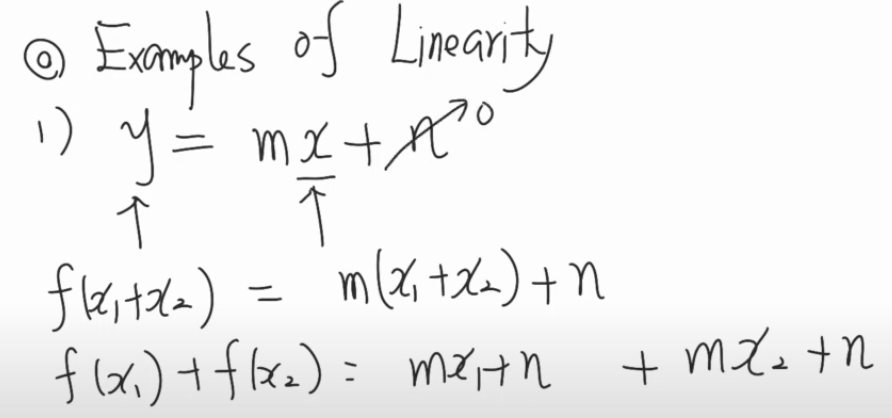 ◎ Examples of Linearity
1) y = mx + n↗0
↑ ↑
f(x₁+x₂) = m(x₁+x₂)+n
f(x₁)+f(x₂) = mx₁+n + mx₂+n